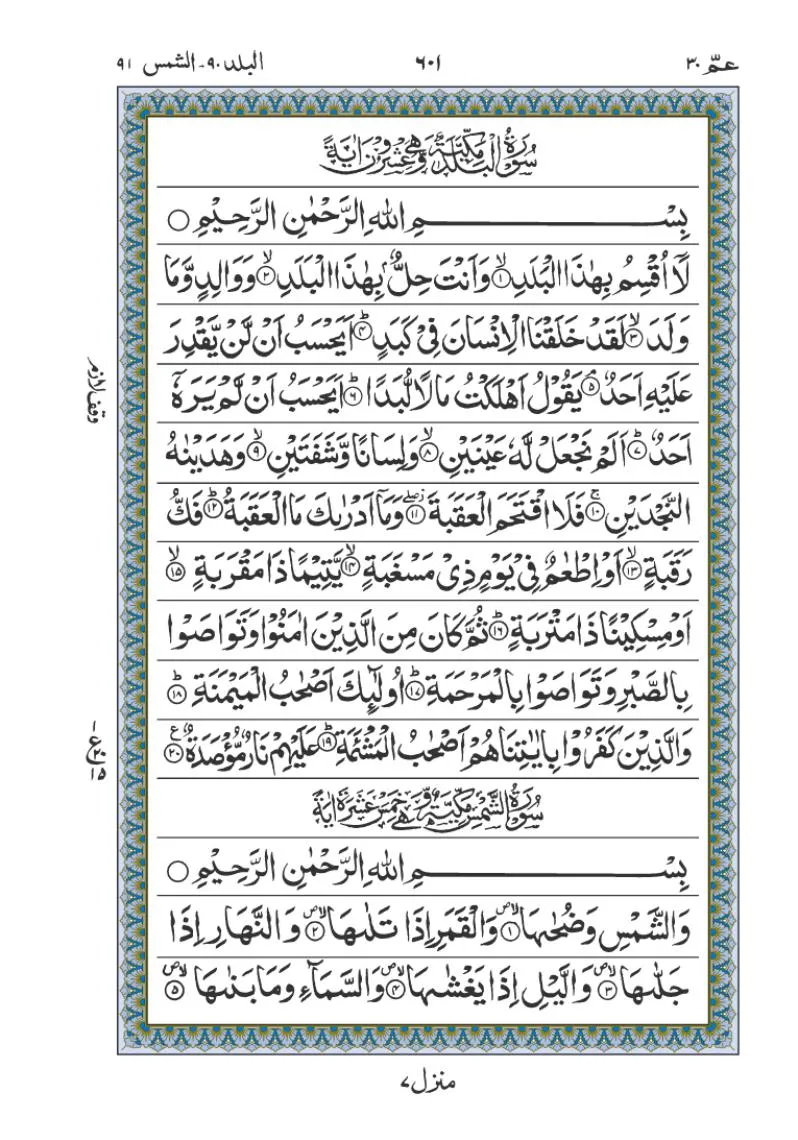 عمّ ۳۰
۶۰۱
البلد ۹۰ - الشمس ۹۱
سُوْرَةُ الْبَلَدِ مَكِّيَّةٌ وَّهِيَ عِشْرُوْنَ اٰيَةً
بِسْمِ اللّٰهِ الرَّحْمٰنِ الرَّحِيْمِ ○
لَاۤ اُقْسِمُ بِهٰذَا الْبَلَدِ ۙ‏﴿۱﴾ وَاَنْتَ حِلٌّۢ بِهٰذَا الْبَلَدِ ۙ‏﴿۲﴾ وَوَالِدٍ وَّمَا
وَلَدَ ۙ‏﴿۳﴾ لَقَدْ خَلَقْنَا الْاِنْسَانَ فِيْ كَبَدٍ ؕ‏﴿۴﴾ اَيَحْسَبُ اَنْ لَّنْ يَّقْدِرَ
عَلَيْهِ اَحَدٌ ۘ‏﴿۵﴾ يَقُوْلُ اَهْلَكْتُ مَالًا لُّبَدًا ؕ‏﴿۶﴾ اَيَحْسَبُ اَنْ لَّمْ يَرَهٗۤ
وقف لازم
اَحَدٌ ؕ‏﴿۷﴾ اَلَمْ نَجْعَلْ لَّهٗ عَيْنَيْنِ ۙ‏﴿۸﴾ وَلِسَانًا وَّشَفَتَيْنِ ۙ‏﴿۹﴾ وَهَدَيْنٰهُ
النَّجْدَيْنِ ۚ‏﴿۱۰﴾ فَلَا اقْتَحَمَ الْعَقَبَةَ ﴿۱۱﴾ وَمَاۤ اَدْرٰىكَ مَا الْعَقَبَةُ ؕ‏﴿۱۲﴾ فَكُّ
رَقَبَةٍ ۙ‏﴿۱۳﴾ اَوْ اِطْعٰمٌ فِيْ يَوْمٍ ذِيْ مَسْغَبَةٍ ۙ‏﴿۱۴﴾ يَّتِيْمًا ذَا مَقْرَبَةٍ ۙ‏﴿۱۵﴾
اَوْ مِسْكِيْنًا ذَا مَتْرَبَةٍ ؕ‏﴿۱۶﴾ ثُمَّ كَانَ مِنَ الَّذِيْنَ اٰمَنُوْا وَتَوَاصَوْا
بِالصَّبْرِ وَتَوَاصَوْا بِالْمَرْحَمَةِ ؕ‏﴿۱۷﴾ اُولٰٓئِكَ اَصْحٰبُ الْمَيْمَنَةِ ؕ‏﴿۱۸﴾
وَالَّذِيْنَ كَفَرُوْا بِاٰيٰتِنَا هُمْ اَصْحٰبُ الْمَشْـَٔمَةِ ؕ‏﴿۱۹﴾ عَلَيْهِمْ نَارٌ مُّؤْصَدَةٌ ﴿۲۰﴾ ع
سُوْرَةُ الشَّمْسِ مَكِّيَّةٌ وَّهِيَ خَمْسَ عَشْرَةَ اٰيَةً
بِسْمِ اللّٰهِ الرَّحْمٰنِ الرَّحِيْمِ ○
وَالشَّمْسِ وَضُحٰىهَا ﴿۱﴾ وَالْقَمَرِ اِذَا تَلٰىهَا ﴿۲﴾ وَالنَّهَارِ اِذَا
جَلّٰىهَا ﴿۳﴾ وَالَّيْلِ اِذَا يَغْشٰىهَا ﴿۴﴾ وَالسَّمَآءِ وَمَا بَنٰىهَا ﴿۵﴾
منزل ۷